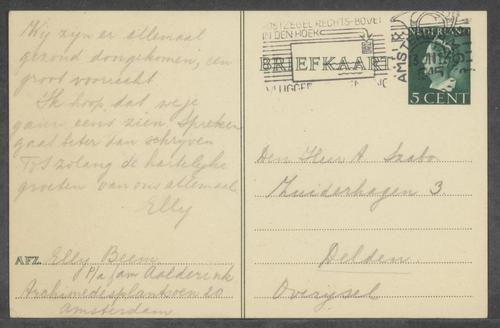 Wij zyn er allemaal
gezond doorgekomen, een
groot voorrecht
Ik hoop dat we je
gauw eens zien. Spreken
gaat beter dan schrijven
Tot zolang de hartelijke
groeten van ons allemaal
Elly
AFZ. Elly Beem
p/a fam Aalderink
Archimedesplantsoen 20
Amsterdam
POSTZEGEL RECHTS-BOVEN
IN DEN HOEK
BRIEFKAART
NEDERLAND
5 CENT
AMST
Den Heer A. Szabo
Zuiderhagen 3
Delden
Overijsel